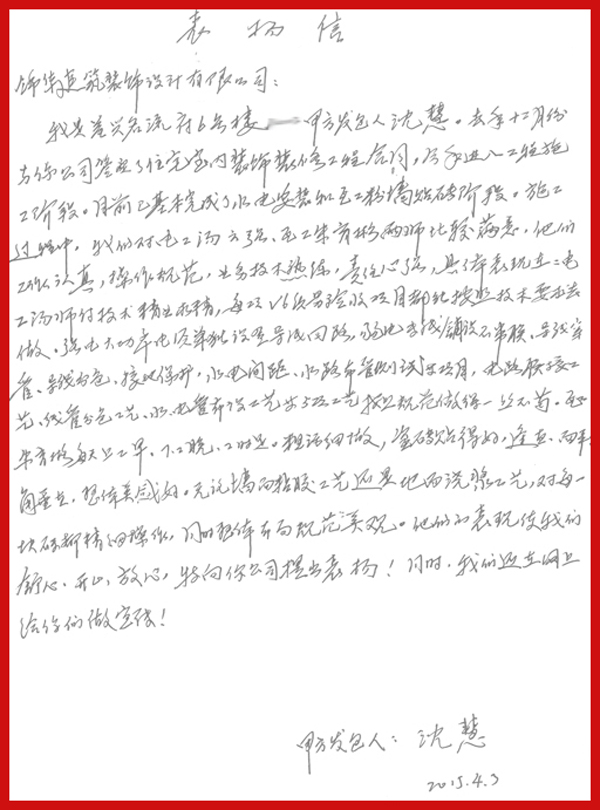 表扬信
饰华建筑装饰设计有限公司：
我是姜兴名流府6号楼 甲方发包人沈慧。去年十二月份
与你公司签订了住宅室内装饰装修工程合同，今年进入工程施
工阶段。目前已基本完成了水电安装和瓦工粉墙贴砖阶段。施工
过程中，我们对电工汤云强、瓦工朱育彬两师比较满意，他们
工作认真，操作规范，业务技术熟练，责任心强，具体表现在：电
工汤师付技术精益求精，每项 艺 验收项目都能按照技术要求去
做。强电大功率电项单独设置导线回路，弱电导线铺设不串联、导线穿
管、导线分色、接地保护，水电间距、水路布管测试等项目，电路联接工
艺、线管分色工艺、水、电管布设工艺等工艺 规范做得一丝不苟。瓦工
朱育彬每天上工早、下工晚、工时足。粗活细做，瓷砖贴得好，逢直、面平、
角垂直，整体美感好。无论墙面粘胶工艺还是地面浇浆工艺，对每一
块砖都精细操作，同时整体布局规范美观。他们的表现使我们
舒心、开心、放心，特向你公司提出表扬！同时，我们还在网上
给你们做宣传！
甲方发包人：沈慧
2015.4.3